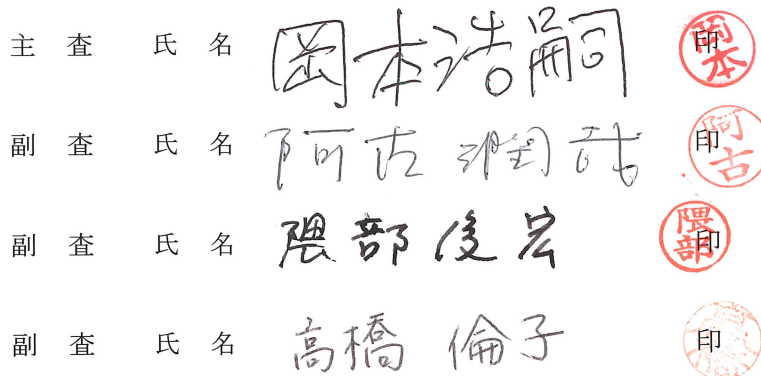 主査 氏名 岡本浩嗣 印 岡本
副査 氏名 阿古潤哉 印 阿古
副査 氏名 隈部俊宏 印 隈部
副査 氏名 高橋 倫子 印